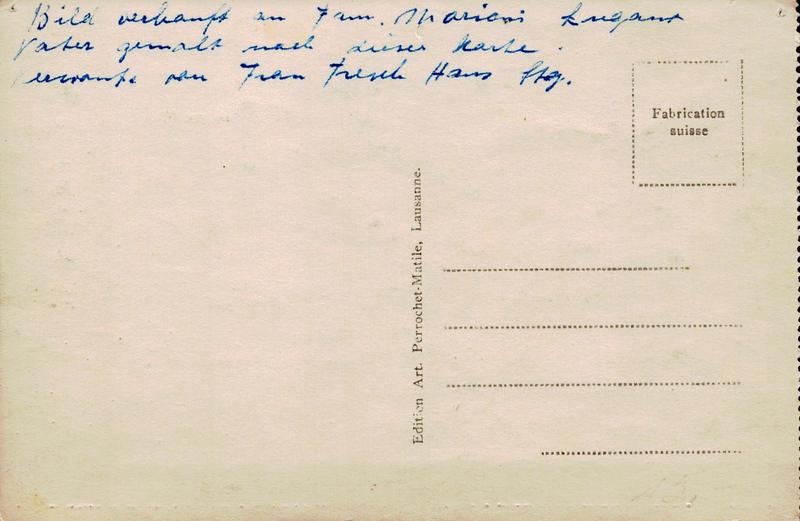 Bild verkauft an Fam. Mariani Lugano
Vater gemalt nach dieser Karte.
von Frau Fresch Hans
Fabrication
suisse
Edition Art. Perrochet-Matile, Lausanne.